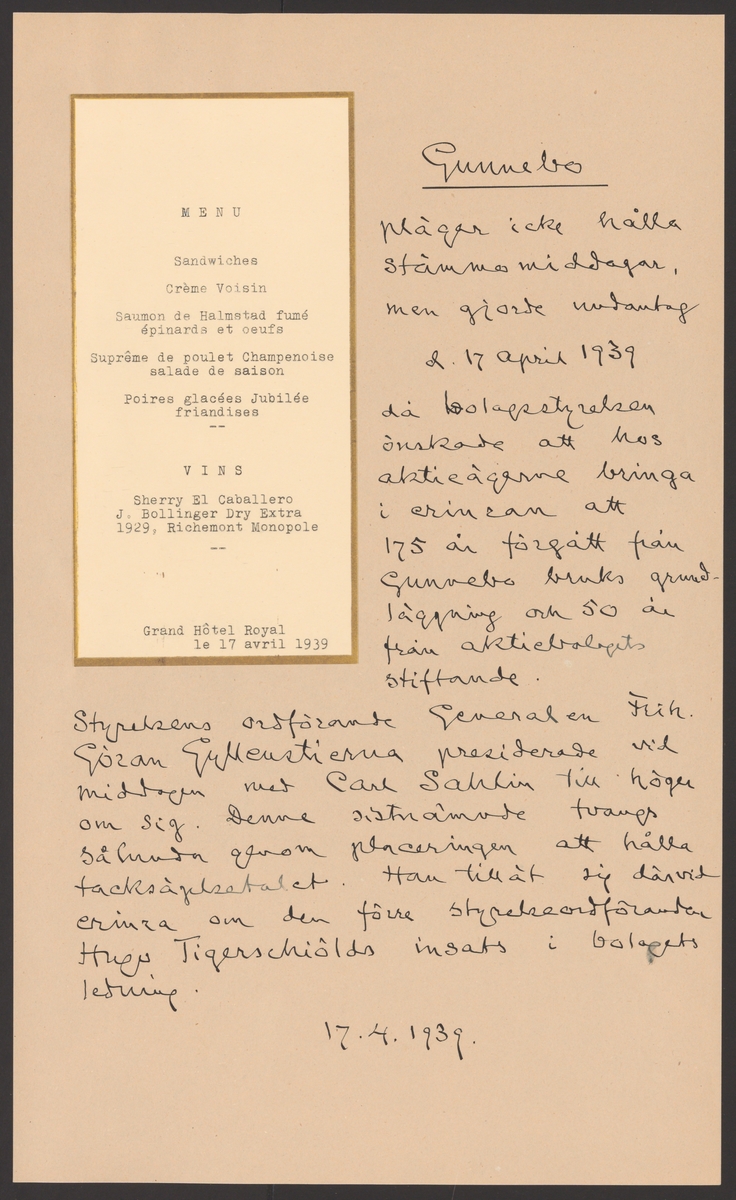 MENU
Sandwiches
Crème Voisin
Saumon de Halmstad fumé
épinards et oeufs
Suprême de poulet Champenoise
salade de saison
Poires glacées Jubilée
friandises
--
VINS
Sherry El Caballero
J. Bollinger Dry Extra
1929, Richemont Monopole
--
Grand Hôtel Royal
le 17 avril 1939
Gunnebo
plägar icke hålla
stämmomiddagar,
men gjorde undantag
d. 17 april 1939
då bolagsstyrelsen
önskade att hos
aktieägerne bringa
i erinran att
175 år förgått från
Gunnebo bruks grund-
läggning och 50 år
från aktiebolagets
stiftande.
Styrelsens ordförande Generalen Frih.
Göran Gyllenstierna presiderade vid
middagen med Carl Sahlin till höger
om sig. Denne sistnämnde tvangs
sålunda genom placeringen att hålla
tacksägelsetalet. Han tillät sig därvid
erinra om den förre styrelseordföranden
Hugo Tigerschiölds insats i bolagets
ledning.
17.4.1939.